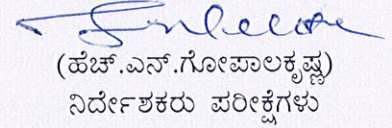 (ಹೆಚ್.ಎನ್.ಗೋಪಾಲಕೃಷ್ಣ)
ನಿರ್ದೇಶಕರು ಪರೀಕ್ಷೆಗಳು